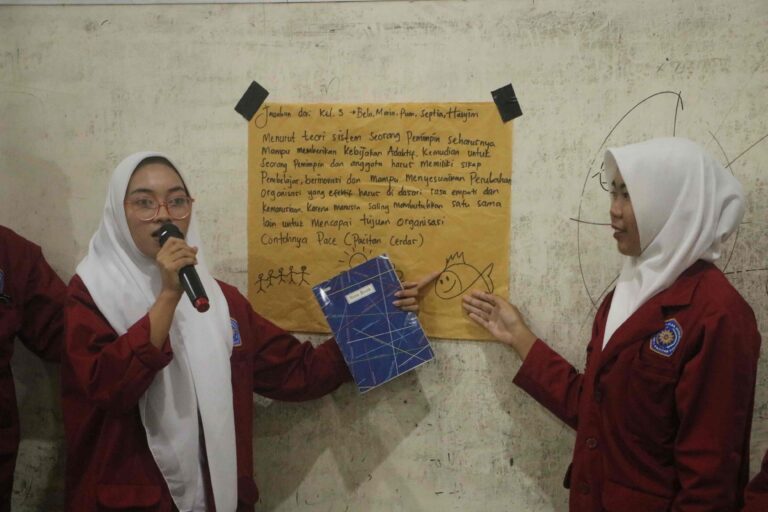 Jawaban dari Kel. 3 → Bela, Marin, Puan, Septia, Hasyim
Menurut teori sistem Seorang Pemimpin seharusnya
Mampu memberikan Kebijakan Adaktif. Kemudian untuk
Seorang Pemimpin dan anggota harus memiliki sikap
Pembelajar, berinovasi dan mampu menyesuaikan Perubahan
Organisasi yang efektif harus di dasari rasa empati dan
Kemanusiaan. Karena manusia saling membutuhkan satu sama
lain untuk mencapai tujuan organisasi
Contohnya Pace (Pacitan Cerdas)